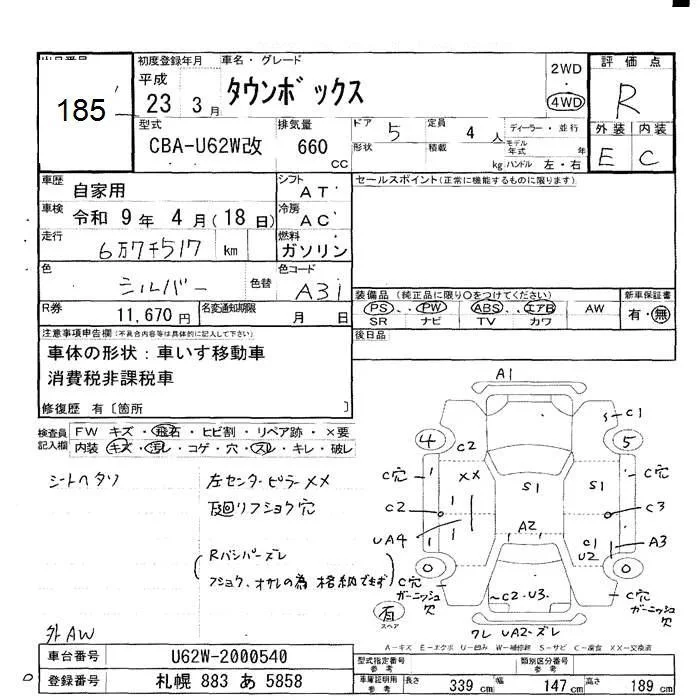 185
初度登録年月 車名・グレード
平成 23 3月 タウンボックス
2WD
・
4WD
評価点
R
型式 CBA-U62W改 排気量 660 CC
ドア 5 定員 4人 ディーラー・並行
形状 積載 kg モデル年式 年
ハンドル 左・右
外装 内装
E C
車歴 自家用 シフト AT
車検 令和 9年 4月(18日) 冷房 AC
走行 6万7千517 km 燃料 ガソリン
色 シルバー 色替 色コード A31
R券 11,670円 名変通知期限 月 日
セールスポイント(正常に機能するものに限ります)
装備品(純正品に限り○をつけてください) 新車保証書
PS PW ABS エアB AW 有・無
SR ナビ TV カワ
後日品
注意事項申告欄(不具合内容等は具体的に記入して下さい)
車体の形状:車いす移動車
消費税非課税車
修復歴 有〔箇所 〕
検査員記入欄
FW キズ・飛石・ヒビ割・リペア跡・×要
内装 キズ・汚レ・コゲ・穴・スレ・キレ・破レ
シートヘタリ 左センターピラーXX
リフショク穴
Rバンパーズレ
フショク、オサレの為 格納できず
外AW
A1
C1
4 5
C2
C穴 XX S1 S1 C穴
C2 C3
UA4 A2 C1 U2 A3
0 0
C穴 ガーニッシュ穴 ~C2・U3 C穴 ガーニッシュ穴
有
スペア
ワレ UA2・ズレ
A-キズ E-エクボ U-凹み W-補修跡 S-サビ C-腐食 XX-交換済
車台番号 U62W-2000540
登録番号 札幌 883 あ 5858
型式指定番号 参考 類別区分番号 参考
車庫証明用 参考 長さ 339 cm 幅 147 cm 高さ 189 cm